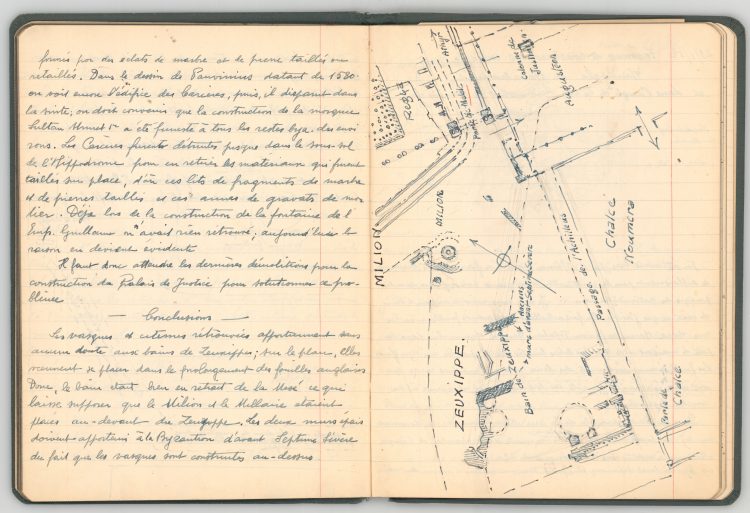 fournis par des eclats de marbre et de pierre taillés ou
retaillés. Dans le dessin de Panvinius datant de 1580
on voit encore l'édifice des Carceres, puis, il disparut dans
la suite; on doit convenir que la construction de la mosquée
Sultan Ahmet 1er a été funeste à tous les restes byz. des envi
rons. Les Carceres furent detruites jusque dans le sous-sol
de l'Hippodrome pour en retirer les materiaux qui furent
taillés sur place, d'où ces lits de fragments de marbre
et de pierres taillés et ces amas de gravats de mor
tier. Déja lors de la construction de la fontaine de l'
Emp. Guillaume on n'avait rien retrouvé; aujourd'hui la
raison en devient evidente
Il faut donc attendre les dernières démolitions pour la
construction du Palais de Justice pour solutionner ce pro-
blème
— Conclusions —
Les vasques et citernes retrouvées appartiennent sans
aucun doute aux bains de Zeuxippe; sur le plan, elles
viennent se placer dans le prolongement des fouilles anglaises
Donc, le bain etait bien en retrait de la Mesé ce qui
laisse supposer que le Milion et le Millaire etaient
placés au-devant du Zeuxippe. Les deux murs épais
doivent appartenir à la Byzantion d'avant Septime Sévère
du fait que les vasques sont construites au-dessus.
Regia
Colonne de Justinien
Augusteon
MILION
MILION
Chalcé
Noumera
Passage de l'Achilleus
ZEUXIPPE.
Bain de ZEUXIPPE
Porte de Chalcé